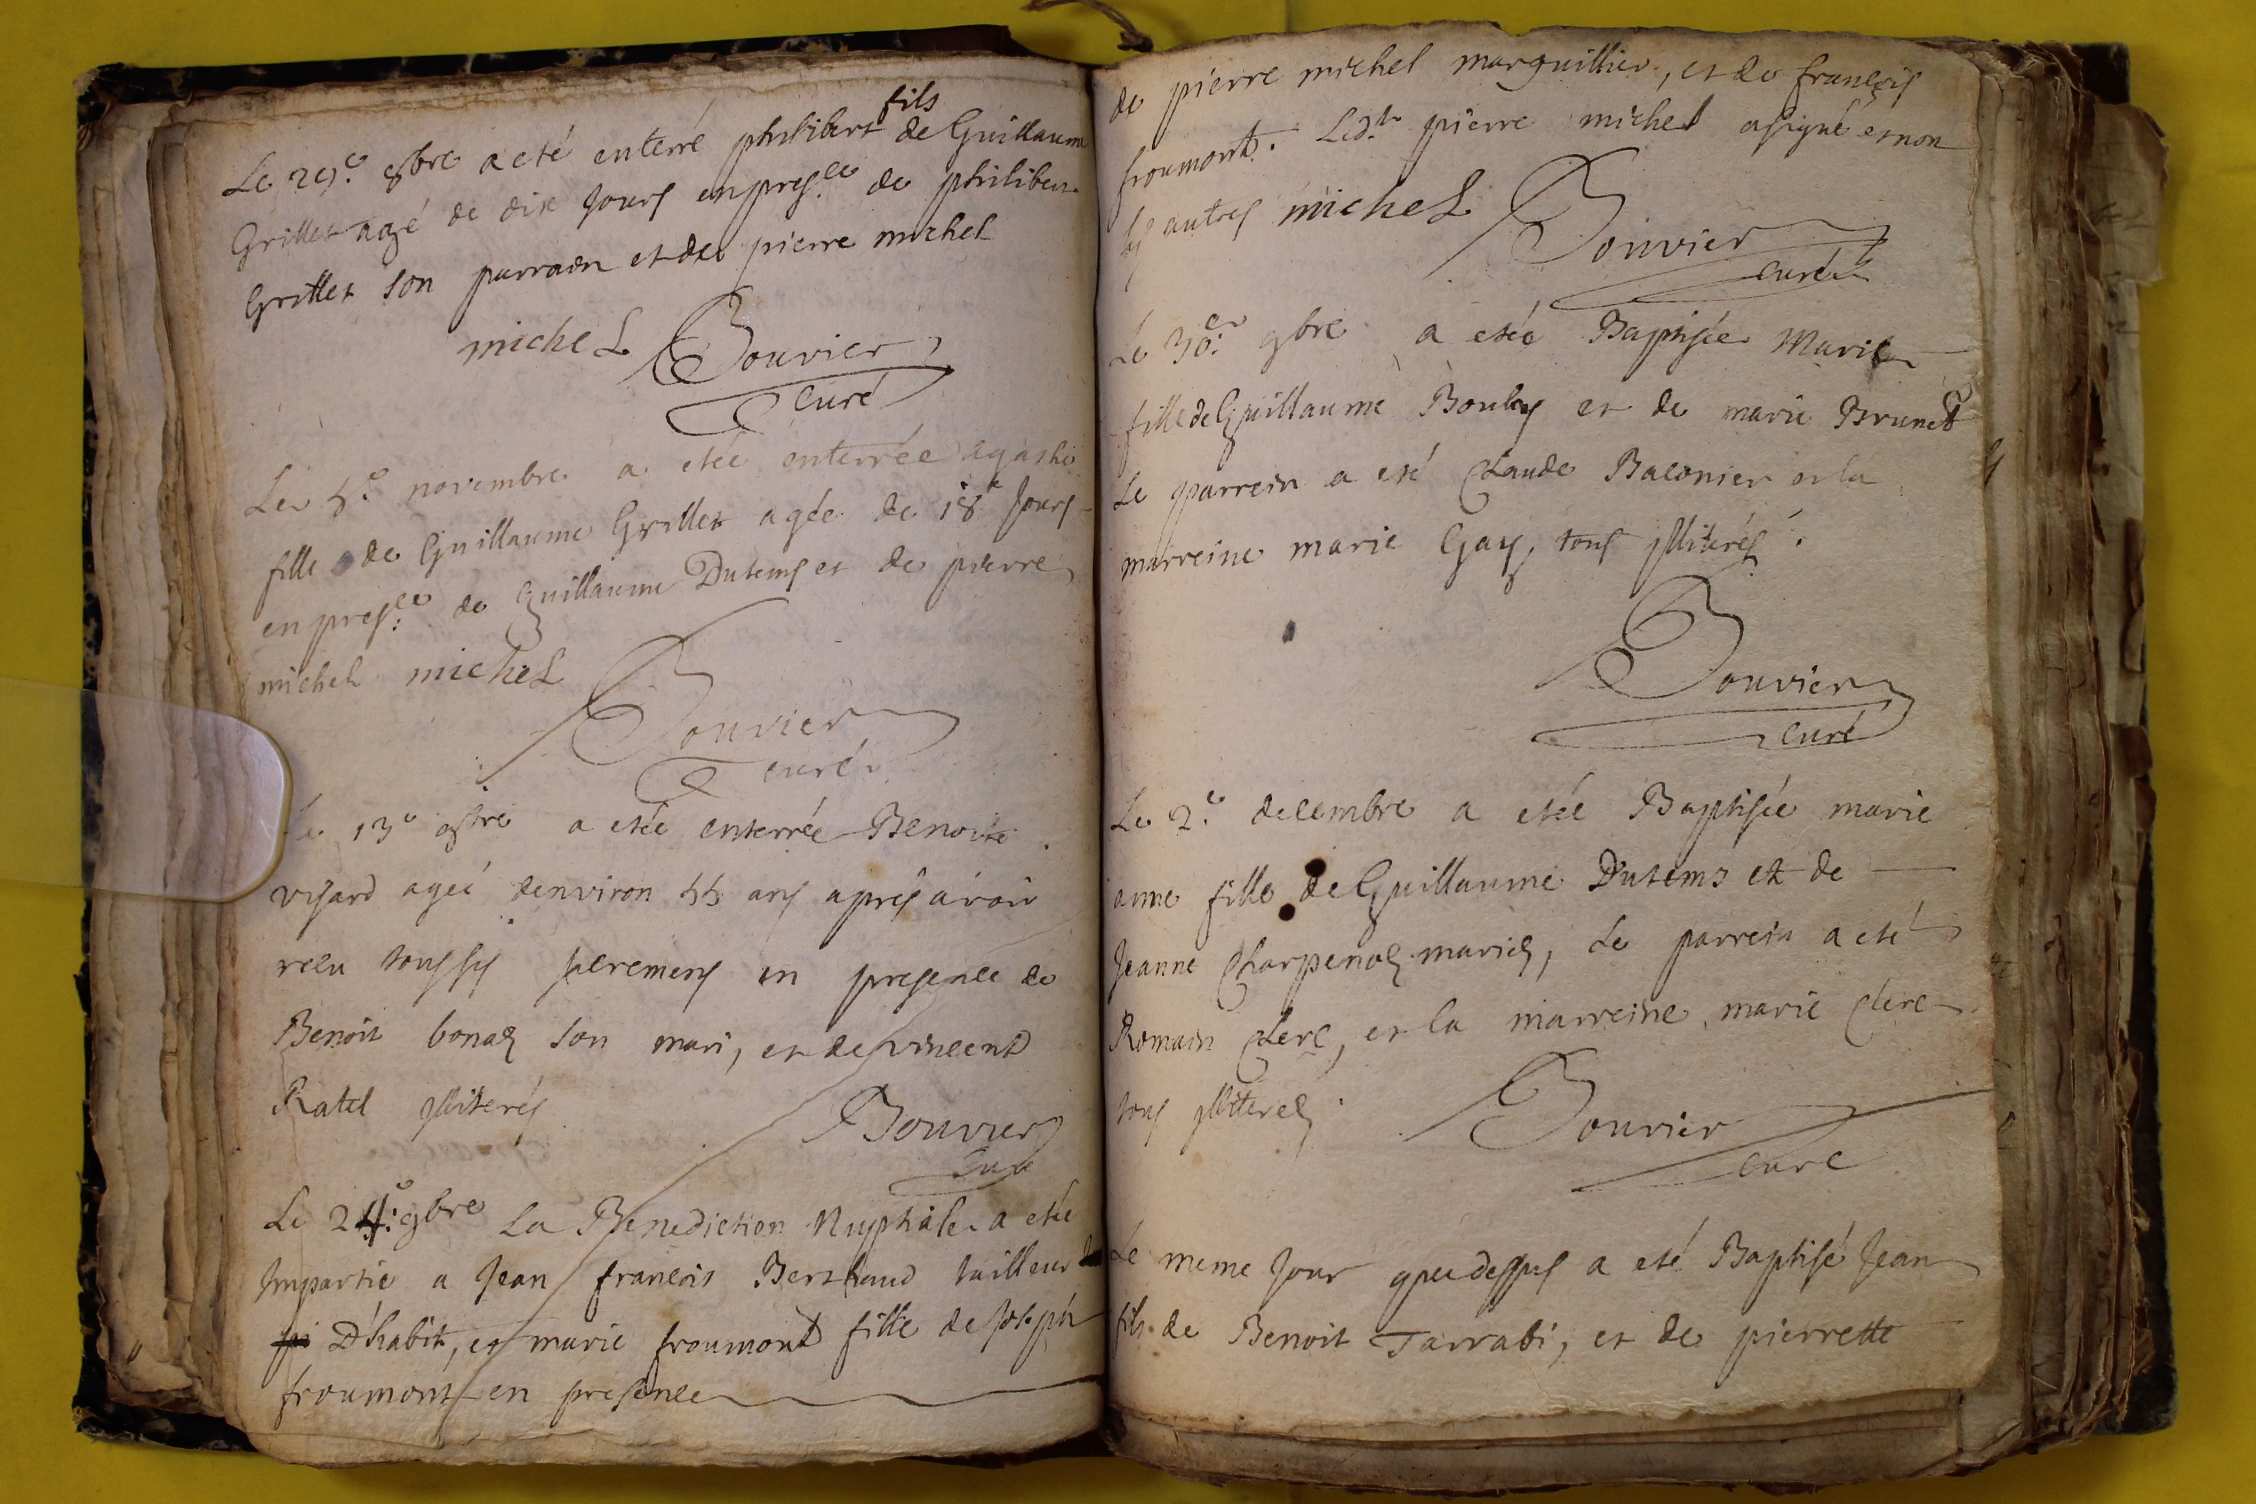 Le 29.e 8bre a eté enterré philibert fils de Guillaume
Grillet agé de dix jours en presce de philibert
Grillet son parrain et de pierre michel
micheL Bouvier
curé
Le 5.e novembre a eteé enterrée agathe
fille de Guillaume Grillet agée de 18 jours
en presce de Guillaume Dutems et de pierre
michel micheL
Bouvier
curé
Le 13e 9bre a eteé enterrée Benoite
agée denviron 55 ans après avoir
recu tous ses sacremens en presence de
Benoit bonaz son mari, et de vincent
Ratel illiterés
Bouvier
curé
Le 24.e 9bre La Benediction Nuptiale a eteé
Impartie a Jean francois Berthaud tailleur
D'habit, et marie froumont fille de joseph
froumont en presence
de pierre michel marguillier, et de françois
froumont. Led.t pierre michel a signé et non
les autres micheL Bouvier
curé
Le 30.e 9bre a eteé Baptisée Marie
fille de Guillaume Bouly et de marie Brunet
Le parrein a eté Claude Baconier et la
marreine marie Gay, tous illiterés.
Bouvier
curé
Le 2.e decembre a eteé Baptisée marie
anne fille de Guillaume Dutems et de
Jeanne Charpenaz mariez, Le parrein a eté
Romain Clerc, et la marreine marie Clerc
tous illiterez.
Bouvier
curé
Le meme jour que dessus a eté Baptisé Jean
fils de Benoit Tarrabi, et de pierrette